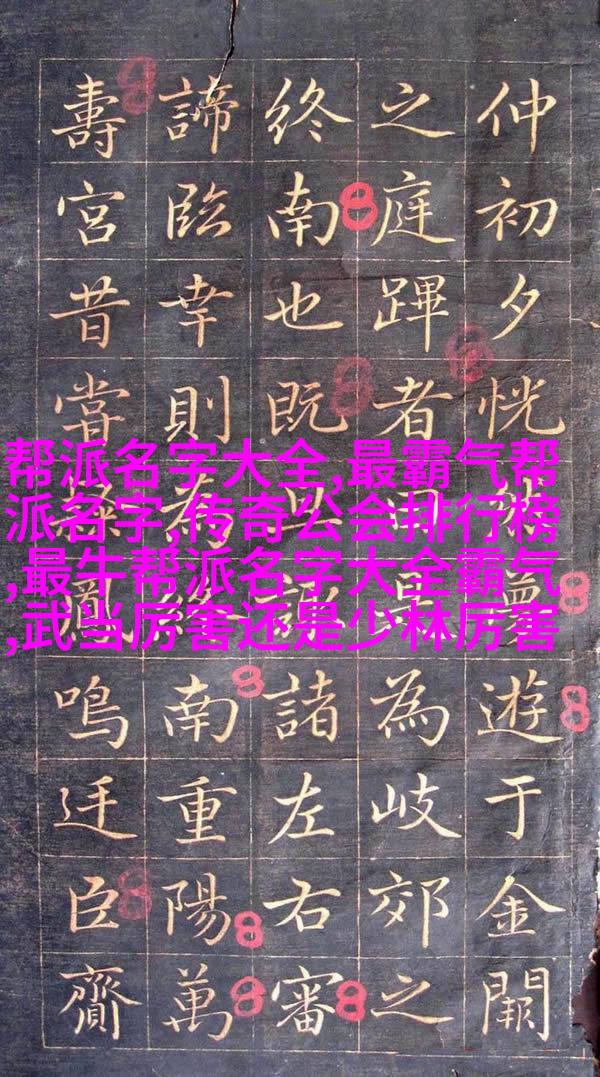 仲初夕恍夢遊于金闕
之庭蹕者為岐郊之
終南也既諸左右審
諦臨幸則考終南重陽萬
壽宮昔當鳳鳴廷臣齎
帮派名字大全,最霸气帮
派名字,传奇公会排行榜
,最牛帮派名字大全霸气
,武当厉害还是少林厉害
8
8
8
8
8
8
8
8
8
8
8